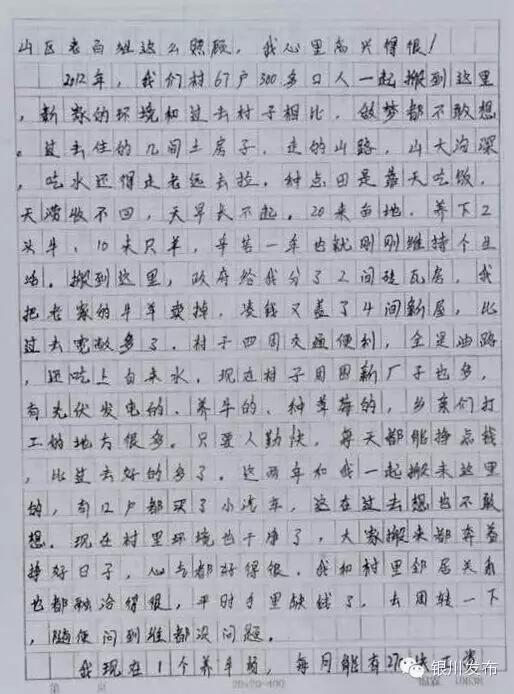 山区老百姓这么照顾，我心里高兴得很！
2012年，我们村67户300多口人一起搬到这里
，新家的环境和过去村子相比，做梦都不敢想
。过去住的几间土房子，走的山路，山大沟深
，吃水还得走老远去拉。种点田是靠天吃饭，
天涝收不回，天旱长不起。20来亩地，养下2
头牛，10来只羊，辛苦一年也就刚刚维持个生
活。搬到这里，政府给我分了2间砖瓦房，我
把老家的牛羊卖掉，凑钱又盖了4间新屋，比
过去宽敞多了。村子四周交通便利，全是油路
，还吃上自来水。现在村子周围新厂子也多，
有光伏发电的、养牛的、种草莓的，乡亲们打
工的地方很多。只要人勤快，每天都能挣点钱
，比过去好的多了。这两年和我一起搬来这里
的，有12户都买了小汽车，这在过去想也不敢
想。现在村里环境也干净了，大家搬来都奔着
挣好日子，心态都好得很。我和村里邻居关系
也都融洽得很，平时手里缺钱了，去周转一下
，随便问到谁都没问题。
我现在1个养牛场，每月能有27
银川发布
第 页 20×20=400